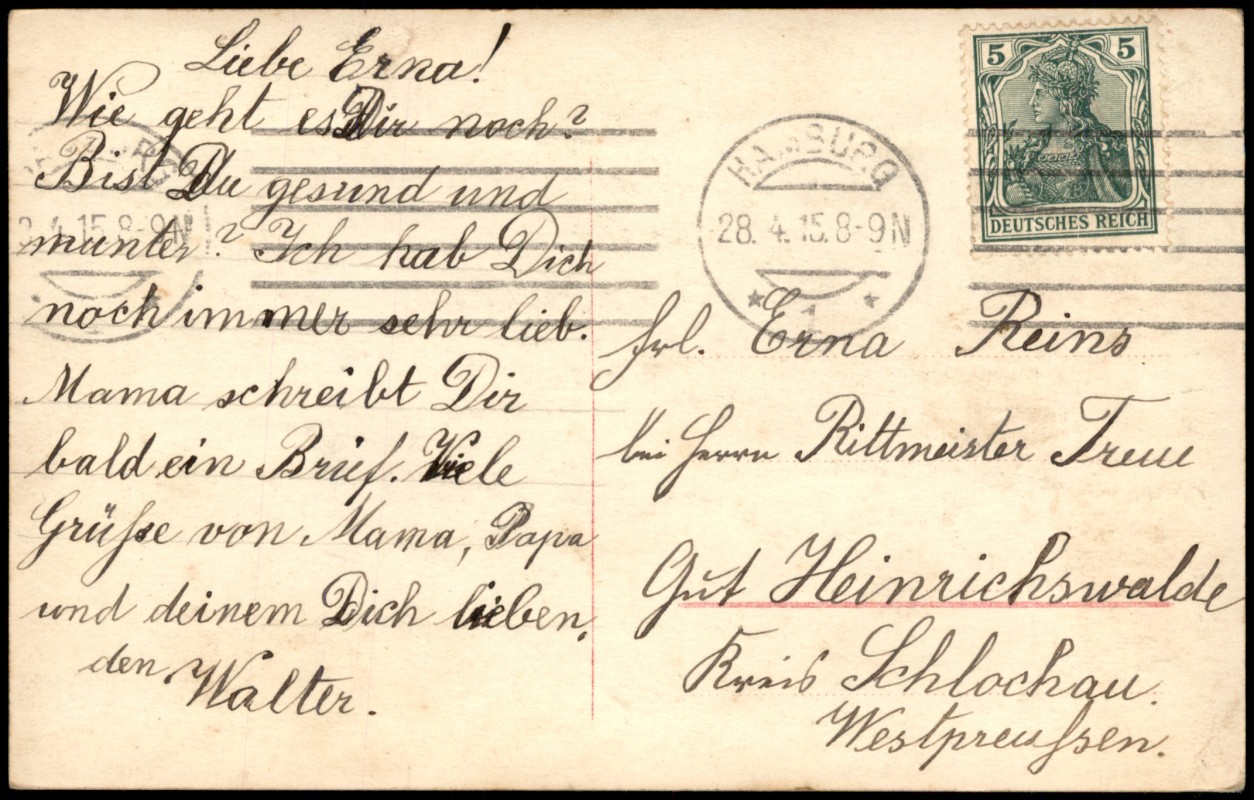 Liebe Erna!
Wie geht es Dir noch?
Bist Du gesund und
munter? Ich hab Dich
noch immer sehr lieb.
Mama schreibt Dir
bald ein Brief. Viele
Grüße von Mama, Papa
und deinem Dich lieben,
den Walter.
5 5
DEUTSCHES REICH
HAMBURG
28. 4. 15. 8-9 N
* 1 *
Frl. Erna Reins
bei Herrn Rittmeister Treue
Gut Heinrichswalde
Kreis Schlochau.
Westpreußen.